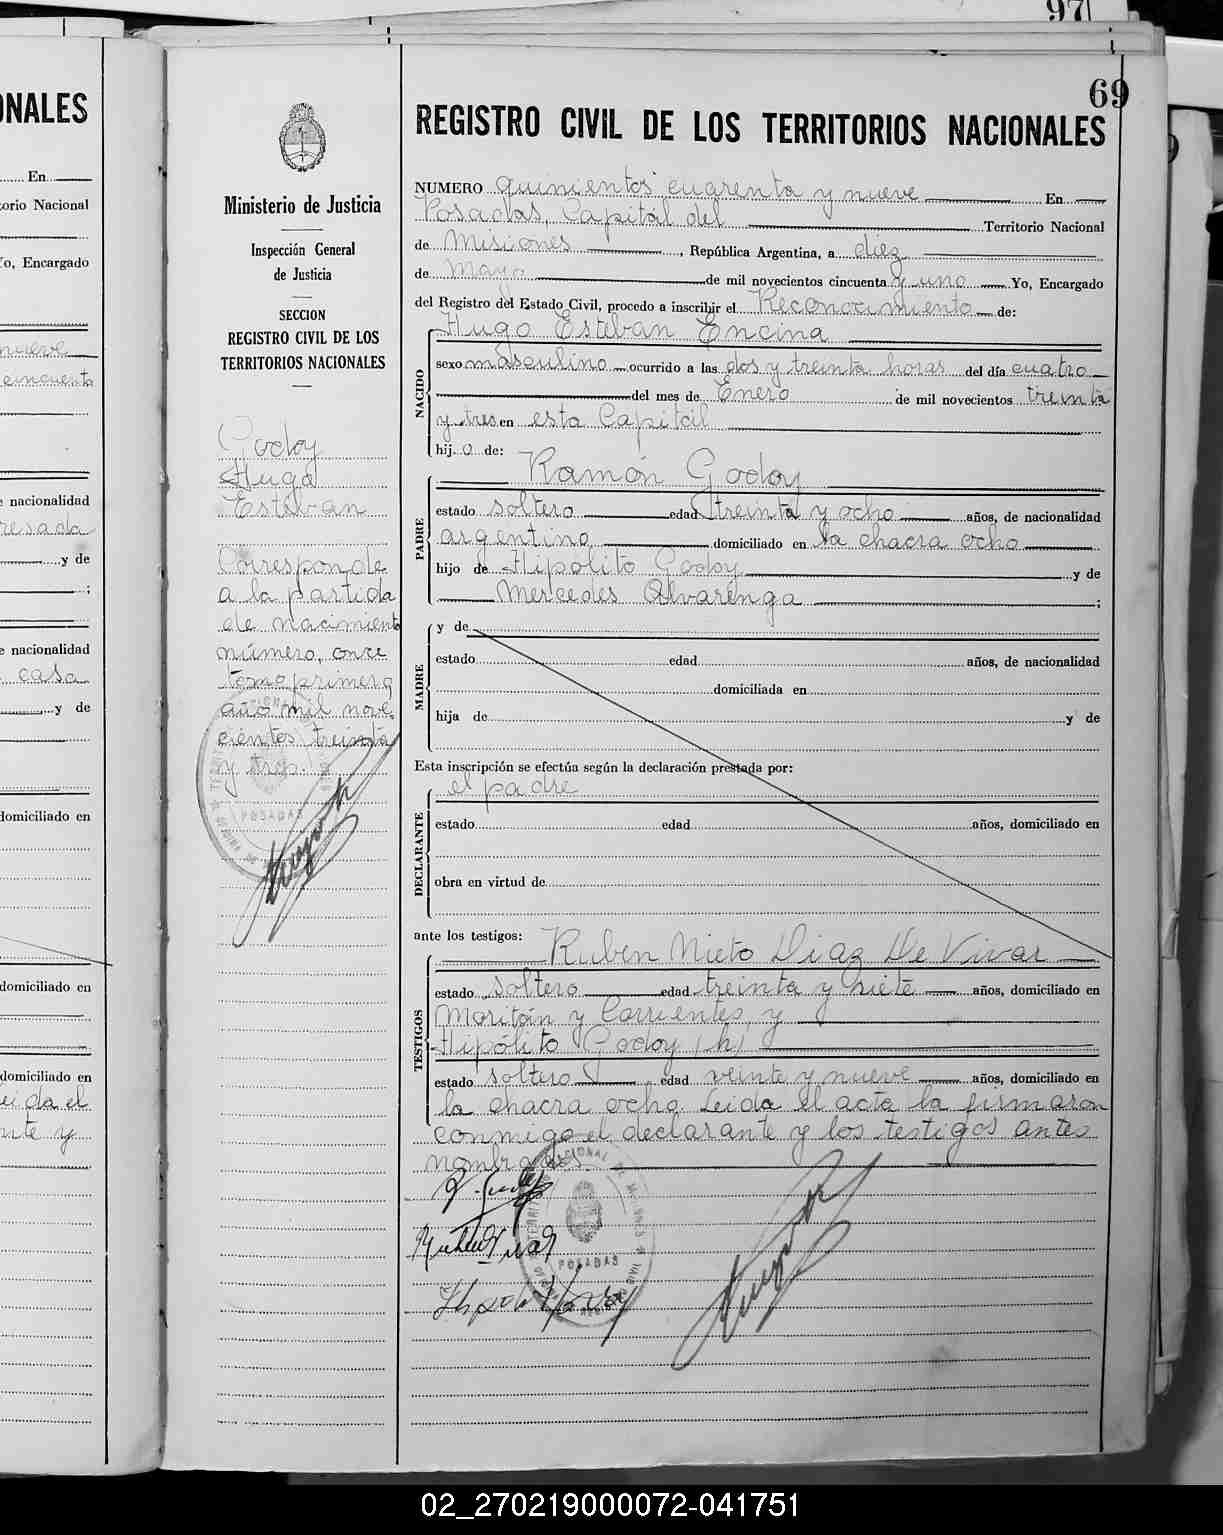 97
69
ONALES
REGISTRO CIVIL DE LOS TERRITORIOS NACIONALES
Ministerio de Justicia
Inspección General
de Justicia
SECCION
REGISTRO CIVIL DE LOS
TERRITORIOS NACIONALES
Godoy
Hugo
Esteban
Corresponde
a la partida
de nacimiento
número, once
tomo primero
año mil nove
cientos treinta
y tres.
NUMERO quinientos cuarenta y nueve En
Posadas, Capital del Territorio Nacional
de Misiones, República Argentina, a diez
de Mayo de mil novecientos cincuenta y uno Yo, Encargado
del Registro del Estado Civil, procedo a inscribir el Reconocimiento de:
NACIDO
Hugo Esteban Encina
sexo masculino ocurrido a las dos y treinta horas del día cuatro
del mes de Enero de mil novecientos treinta
y tres en esta Capital
hij o de:
PADRE
Ramón Godoy
estado soltero edad treinta y ocho años, de nacionalidad
argentino domiciliado en la chacra ocho
hijo de Hipólito Godoy y de
Mercedes Alvarenga ;
MADRE
y de
estado edad años, de nacionalidad
domiciliada en
hija de y de
Esta inscripción se efectúa según la declaración prestada por:
DECLARANTE
el padre
estado edad años, domiciliado en
obra en virtud de
ante los testigos:
TESTIGOS
Ruben Nieto Diaz De Vivar
estado soltero edad treinta y siete años, domiciliado en
Moritán y Corrientes, y
Hipólito Godoy (h)
estado soltero edad veinte y nueve años, domiciliado en
la chacra ocho. Leida el acta la firmaron
conmigo el declarante y los testigos antes
nombrados
POSADAS
POSADAS
En
torio Nacional
Yo, Encargado
nueve
cincuenta
e nacionalidad
resada
y de
;
e nacionalidad
casa
y de
domiciliado en
domiciliado en
domiciliado en
eida el
nte y
02_270219000072-041751